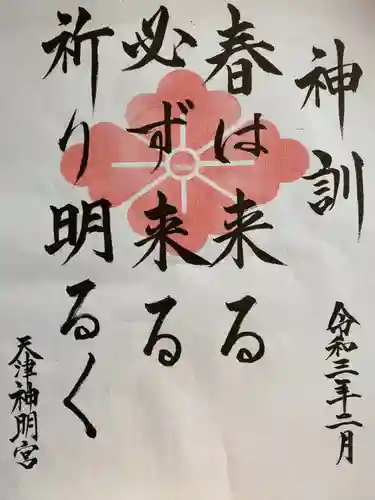 神訓
令和三年二月
春は来る
必ず来る
祈り明るく
天津神明宮